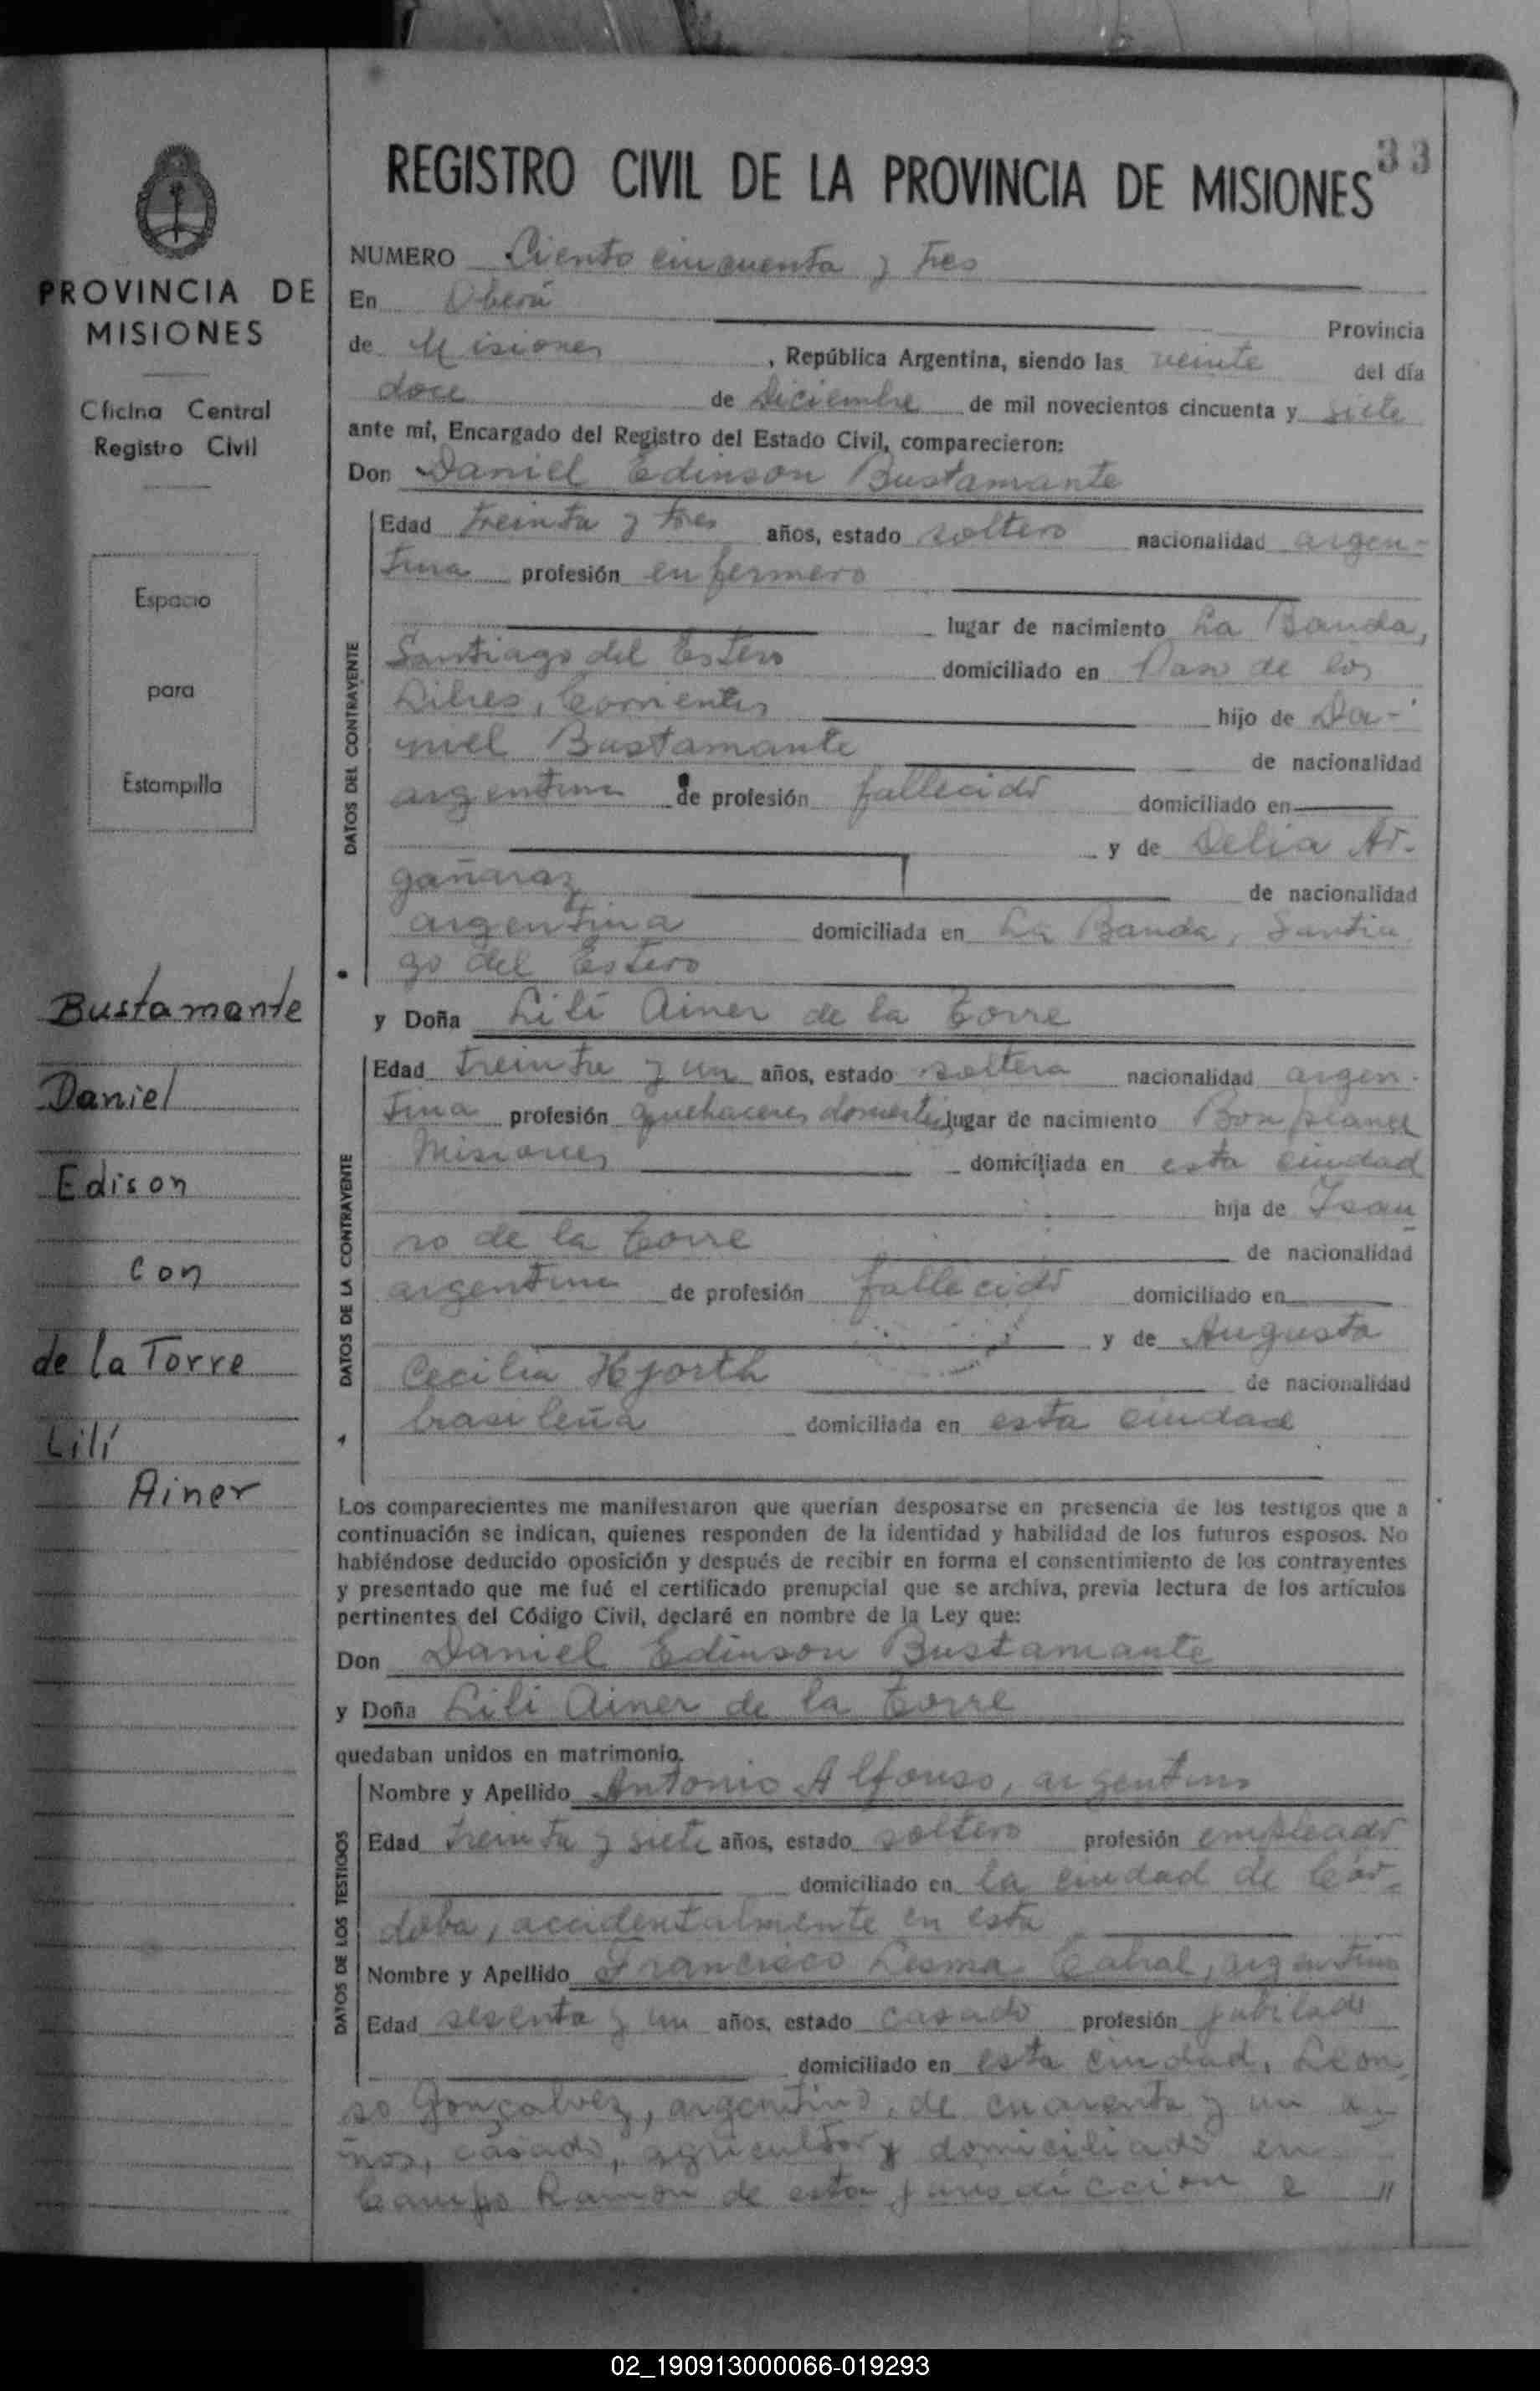 33
REGISTRO CIVIL DE LA PROVINCIA DE MISIONES
PROVINCIA DE
MISIONES
Oficina Central
Registro Civil
Espacio
para
Estampilla
Bustamante
Daniel
Edison
con
de la Torre
Lilí
Ainer
NUMERO Ciento cincuenta y tres
En Oberá Provincia
de Misiones, República Argentina, siendo las veinte del día
doce de Diciembre de mil novecientos cincuenta y siete
ante mí, Encargado del Registro del Estado Civil, comparecieron:
Don Daniel Edinson Bustamante
DATOS DEL CONTRAYENTE
Edad treinta y tres años, estado soltero nacionalidad argen-
tina profesión enfermero
lugar de nacimiento La Banda,
Santiago del Estero domiciliado en Paso de los
Libres, Corrientes hijo de Da-
niel Bustamante de nacionalidad
argentina de profesión fallecido domiciliado en
y de Delia Ar-
gañaraz de nacionalidad
argentina domiciliada en La Banda, Santia
go del Estero
y Doña Lili Ainer de la Torre
DATOS DE LA CONTRAYENTE
Edad treinta y un años, estado soltera nacionalidad argen-
tina profesión quehaceres domésticos lugar de nacimiento Bonpland
Misiones domiciliada en esta ciudad
hija de Isau
ro de la Torre de nacionalidad
argentina de profesión fallecido domiciliado en
y de Augusta
Cecilia Hjorth de nacionalidad
brasileña domiciliada en esta ciudad
Los comparecientes me manifestaron que querían desposarse en presencia de los testigos que a
continuación se indican, quienes responden de la identidad y habilidad de los futuros esposos. No
habiéndose deducido oposición y después de recibir en forma el consentimiento de los contrayentes
y presentado que me fué el certificado prenupcial que se archiva, previa lectura de los artículos
pertinentes del Código Civil, declaré en nombre de la Ley que:
Don Daniel Edinson Bustamante
y Doña Lili Ainer de la Torre
quedaban unidos en matrimonio.
DATOS DE LOS TESTIGOS
Nombre y Apellido Antonio Alfonso, argentino
Edad treinta y siete años, estado soltero profesión empleado
domiciliado en la ciudad de Cór-
doba, accidentalmente en esta
Nombre y Apellido Francisco Lesma Cabral, argentino
Edad sesenta y un años, estado casado profesión jubilado
domiciliado en esta ciudad, Leon
so Gonçalvez, argentino, de cuarenta y un a-
ños, casado, agricultor y domiciliado en
Campo Ramón de esta jurisdicción e //
02_190913000066-019293